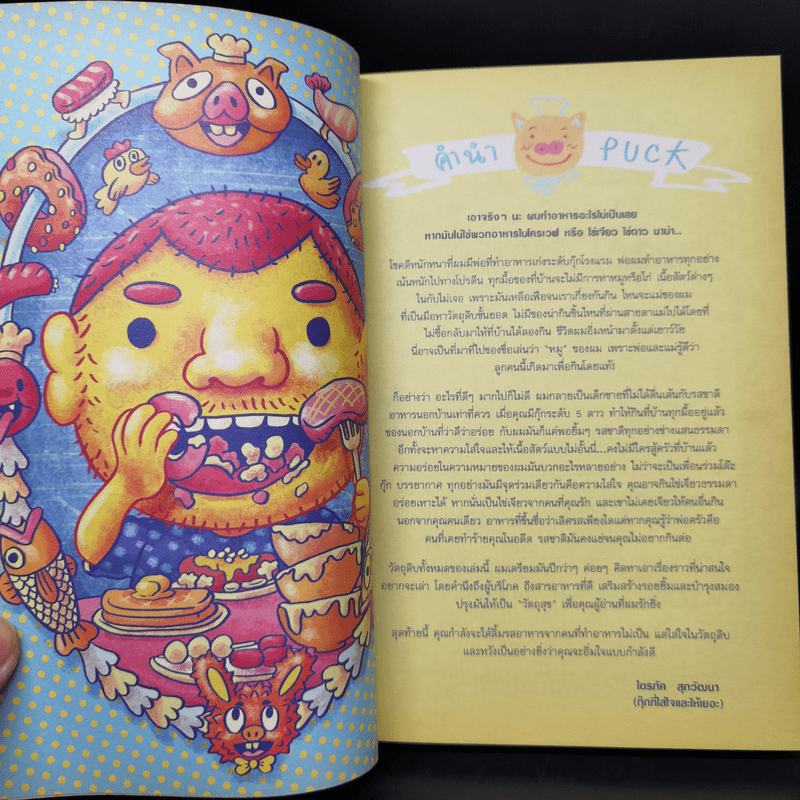 คำนำ PUCK
เอาจริงๆ นะ ผมทำอาหารอะไรไม่เป็นเลย
หากมันไม่ใช่พวกอาหารไมโครเวฟ หรือ ไข่เจียว ไข่ดาว มาม่า...
โชคดีหนักหนาที่ผมมีพ่อที่ทำอาหารเก่งระดับกุ๊กโรงแรม พ่อผมทำอาหารทุกอย่าง
เน้นหนักไปทางโปรตีน ทุกมื้อของที่บ้านจะไม่มีการหาหมูหรือไก่ เนื้อสัตว์ต่างๆ
ในกับไม่เจอ เพราะมันเหลือเฟือจนเราเกี่ยงกันกิน ไหนจะแม่ของผม
ที่เป็นมือหาวัตถุดิบชั้นยอด ไม่มีของน่ากินชิ้นไหนที่ผ่านสายตาแม่ไปได้โดยที่
ไม่ซื้อกลับมาให้ที่บ้านได้ลองกิน ชีวิตผมอิ่มหนำมาตั้งแต่เยาว์วัย
นี่อาจเป็นที่มาที่ไปของชื่อเล่นว่า "หมู" ของผม เพราะพ่อและแม่รู้ดีว่า
ลูกคนนี้เกิดมาเพื่อกินโดยแท้!
ก็อย่างว่า อะไรที่ดีๆ มากไปก็ไม่ดี ผมกลายเป็นเด็กชายที่ไม่ได้ตื่นเต้นกับรสชาติ
อาหารนอกบ้านเท่าที่ควร เมื่อคุณมีกุ๊กระดับ 5 ดาว ทำให้กินที่บ้านทุกมื้ออยู่แล้ว
ของนอกบ้านที่ว่าดีว่าอร่อย กับผมมันก็แค่พอยิ้มๆ รสชาติทุกอย่างช่างแสนธรรมดา
อีกทั้งจะหาความใส่ใจและให้เนื้อสัตว์แบบไม่อั้นนี่...คงไม่มีใครสู้ครัวที่บ้านแล้ว
ความอร่อยในความหมายของผมมันบวกอะไรหลายอย่าง ไม่ว่าจะเป็นเพื่อนร่วมโต๊ะ
กุ๊ก บรรยากาศ ทุกอย่างมันมีจุดร่วมเดียวกันคือความใส่ใจ คุณอาจกินไข่เจียวธรรมดา
อร่อยเหาะได้ หากนั่นเป็นไข่เจียวจากคนที่คุณรัก และเขาไม่เคยเจียวให้คนอื่นกิน
นอกจากคุณคนเดียว อาหารที่ขึ้นชื่อว่าเลิศรสเพียงใดแต่หากคุณรู้ว่าพ่อครัวคือ
คนที่เคยทำร้ายคุณในอดีต รสชาติมันคงแย่จนคุณไม่อยากกินต่อ
วัตถุดิบทั้งหมดของเล่มนี้ ผมเตรียมมันปีกว่าๆ ค่อยๆ คิดหาเอาเรื่องราวที่น่าสนใจ
อยากจะเล่า โดยคำนึงถึงผู้บริโภค ถึงสารอาหารที่ดี เสริมสร้างรอยยิ้มและบำรุงสมอง
ปรุงมันให้เป็น "วัตถุสุข" เพื่อคุณผู้อ่านที่ผมรักยิ่ง
สุดท้ายนี้ คุณกำลังจะได้ลิ้มรสอาหารจากคนที่ทำอาหารไม่เป็น แต่ใส่ใจในวัตถุดิบ
และหวังเป็นอย่างยิ่งว่าคุณจะอิ่มใจแบบกำลังดี
ไตรภัค สุภวัฒนา
(กุ๊กที่ใส่ใจและให้เยอะ)